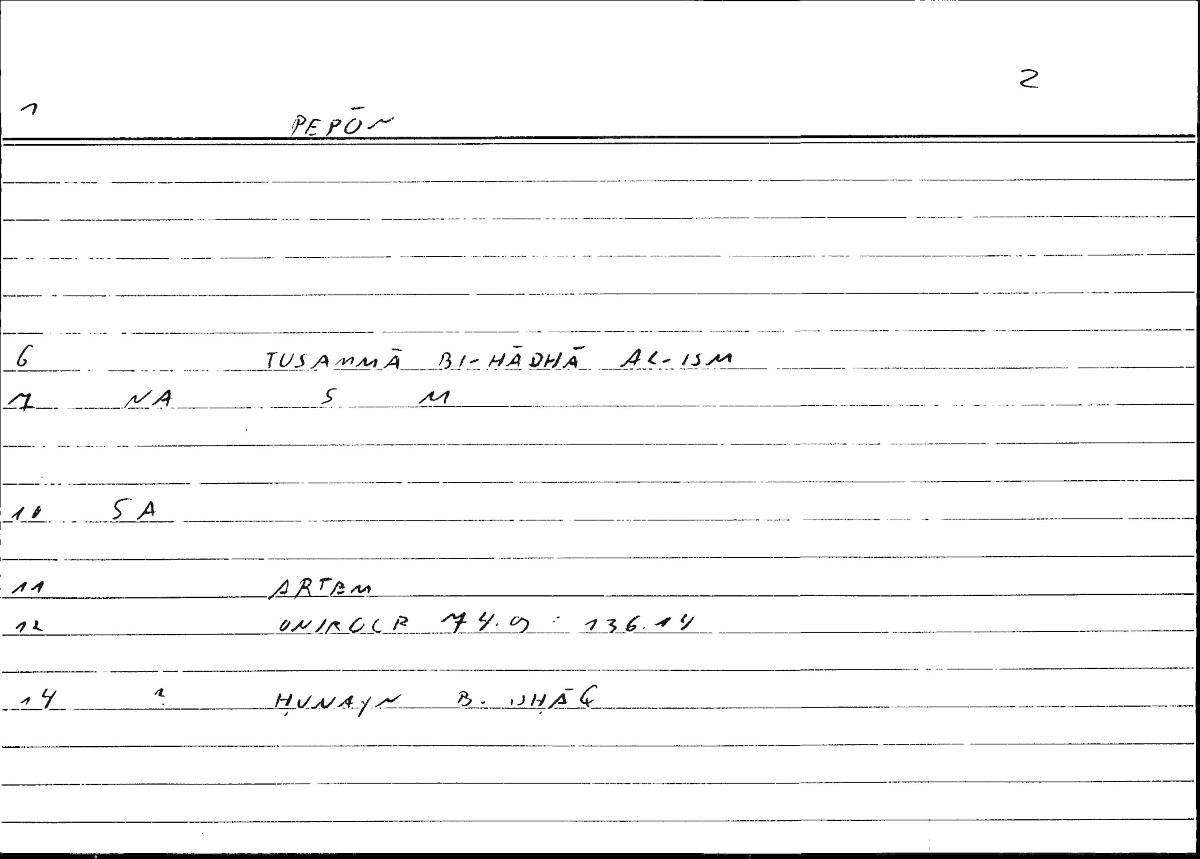 2
1 PEPŌN
6 TUSAMMĀ BI-HĀDHĀ AL-ISM
7 NA S M
10 SA
11 ARTEM
12 ONIROCR 74.9 : 136.14
14 ? ḤUNAYN B. ISḤĀQ